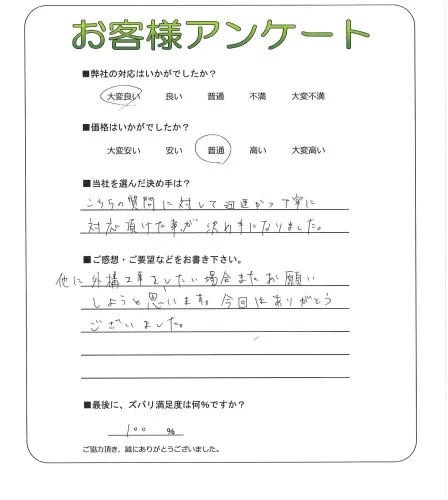 お客様アンケート
■弊社の対応はいかがでしたか？
大変良い 良い 普通 不満 大変不満
■価格はいかがでしたか？
大変安い 安い 普通 高い 大変高い
■当社を選んだ決め手は？
こちらの質問に対して迅速かつ丁寧に
対応頂けた事が決め手になりました。
■ご感想・ご要望などをお書き下さい。
他に外構工事をしたい場合またお願い
しようと思います。今回はありがとう
ございました。
■最後に、ズバリ満足度は何％ですか？
100 %
ご協力頂き、誠にありがとうございました。